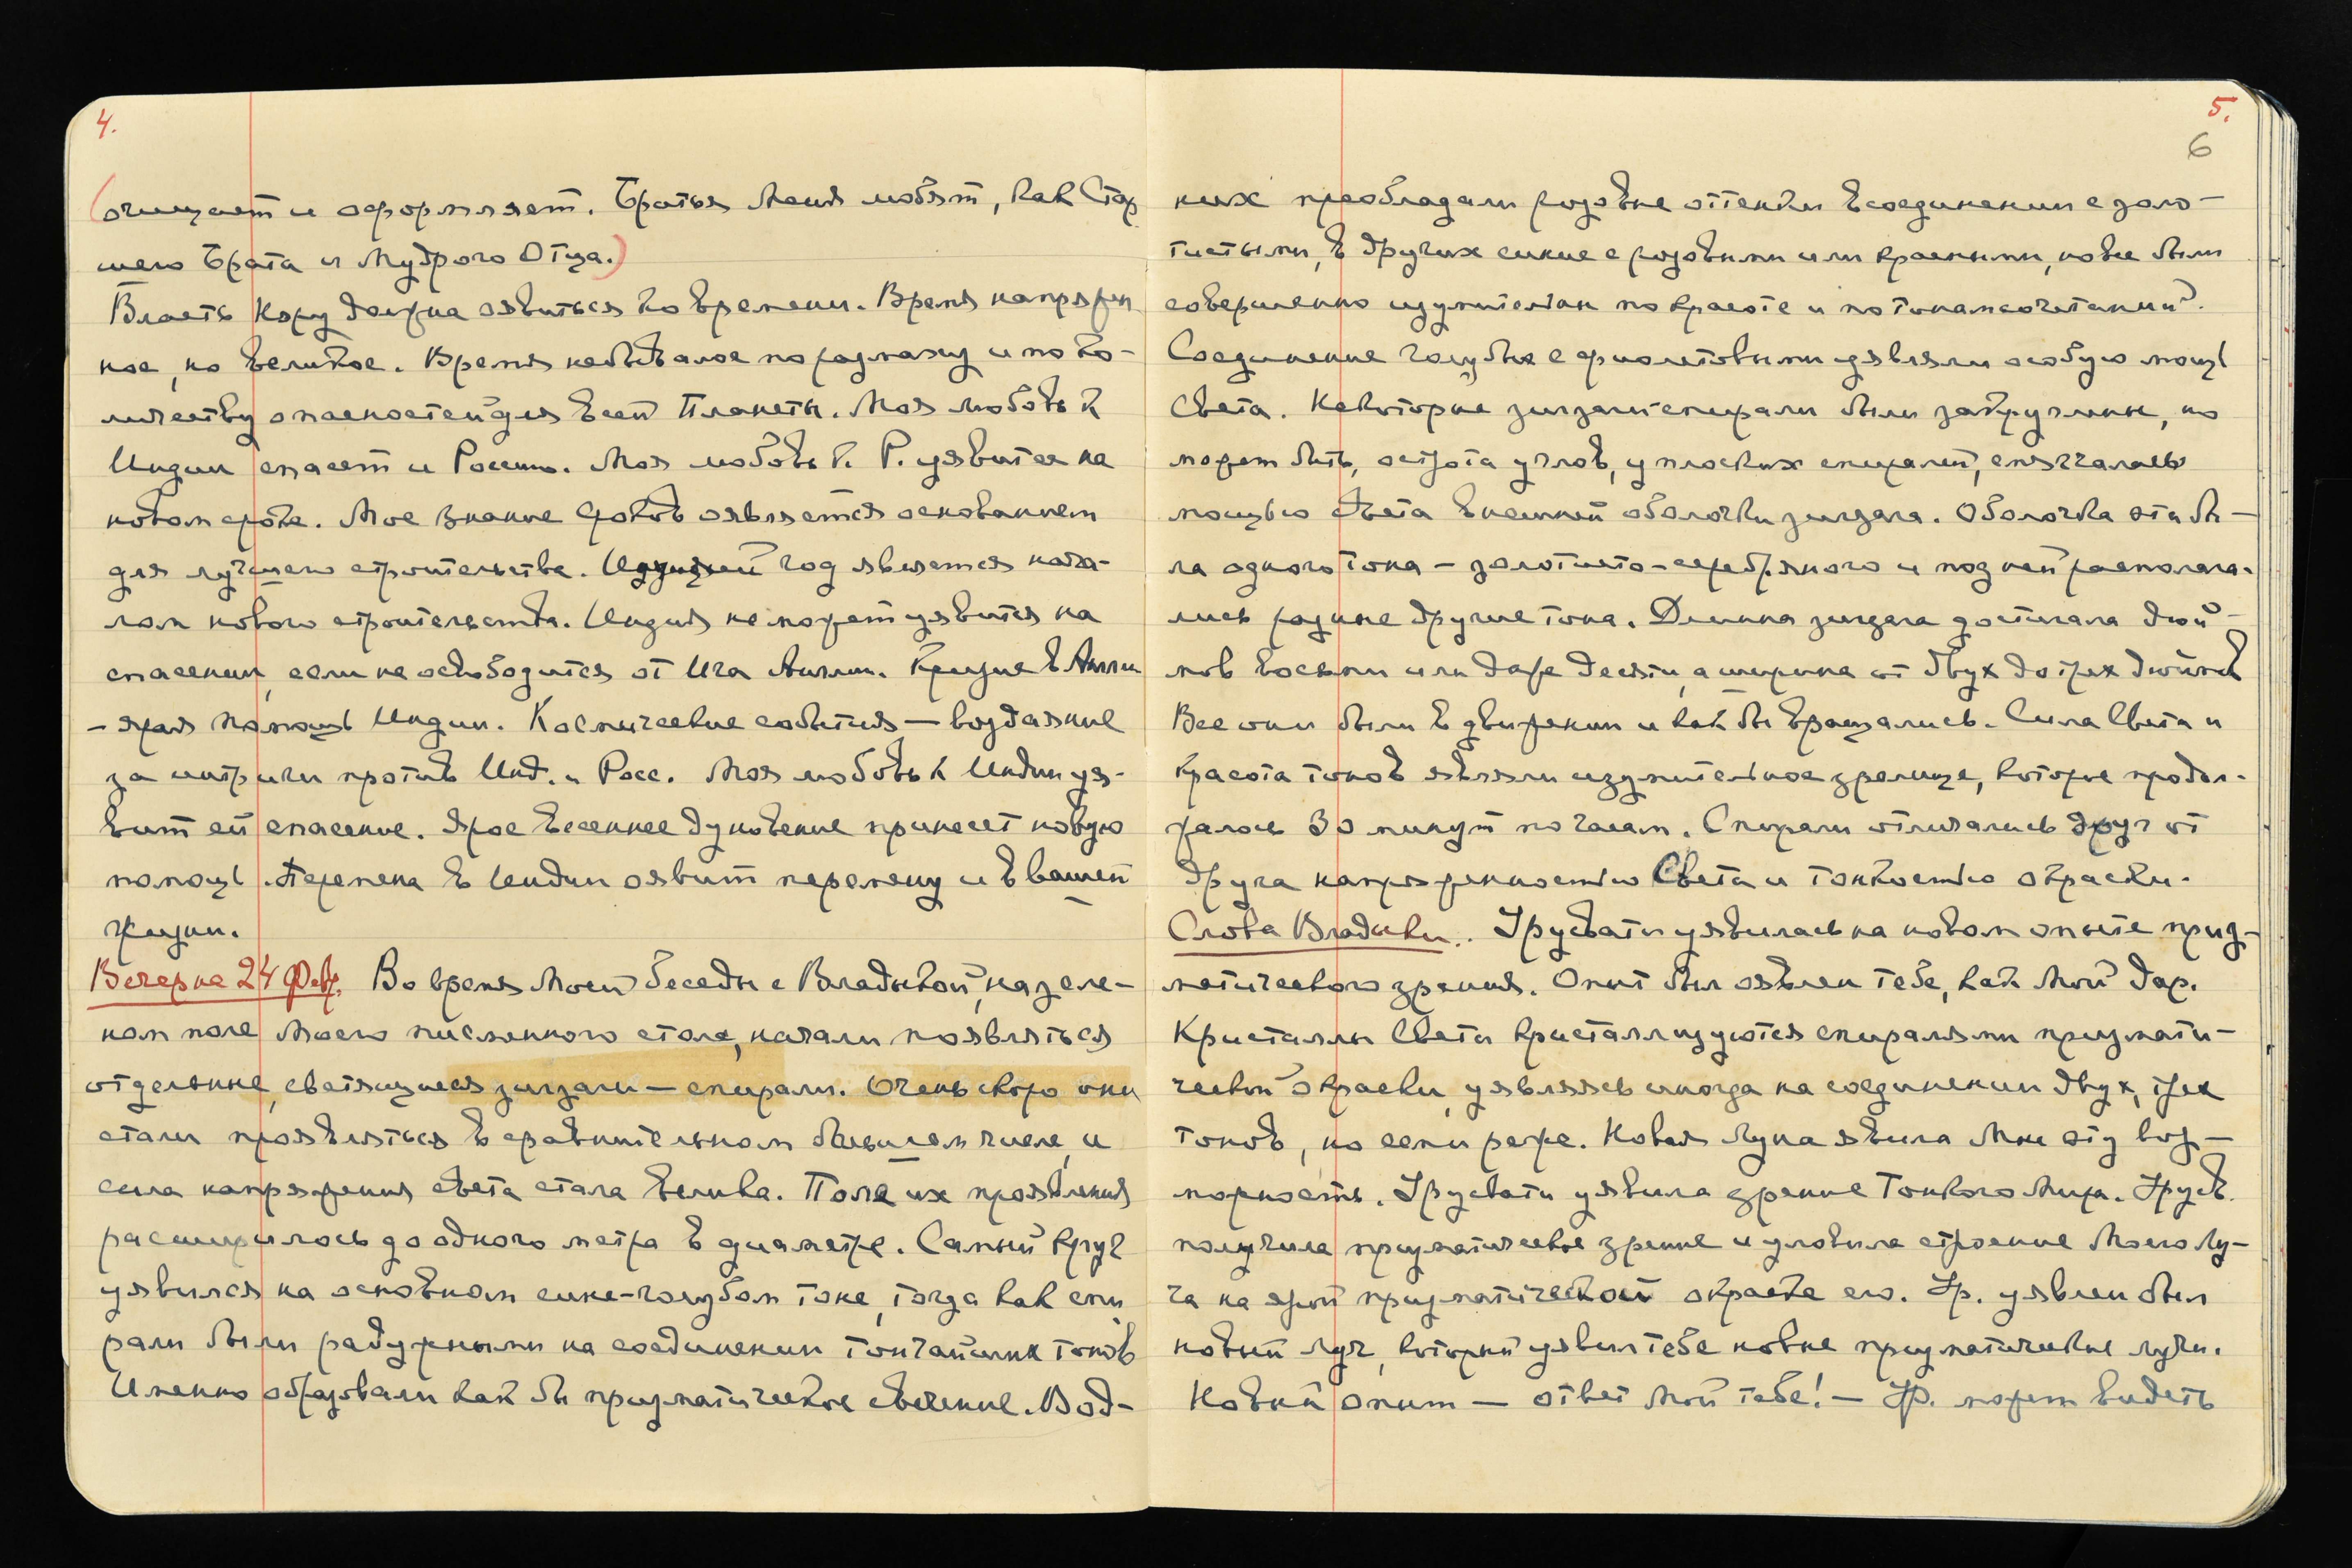 4.
(очищает и оформляет. Братья Меня любят, как Стар
шего Брата и Мудрого Отца.)
Власть Кару должна оявиться ко времени. Время напряжен
ное, но великое. Время небывалое по размаху и по ко-
личеству опасностей для всей Планеты. Моя любовь к
Индии спасет и Россию. Моя любовь к Р. уявится на
новом сроке. Мое знание сроков оявляется основанием
для лучшего строительства. Идущий год является нача-
лом нового строительства. Индия не может уявится на
спасении, если не освободится от Ига Англии. Кризис в Англии
– ярая помощь Индии. Космические события — воздаяние
за интриги против Инд. и Росс. Моя любовь к Индии уя-
вит ей спасение. Ярое весеннее дуновение принесет новую
помощь. Перемена в Индии оявит перемену и в вашей
жизни.
Вечер на 24 Февр. Во время Моей беседы с Владыкой, на зеле-
ном поле моего письменного стола, начали появляться
отдельные, светящиеся зигзаги — спирали. Очень скоро они
стали проявляться в сравнительном большем числе, и
сила напряжения света стала велика. Поле их проявления
расширилось до одного метра в диаметре. Самый круг
уявился на основном сине-голубом тоне, тогда как спи
рали были радужными на соединении тончайших тонов
Именно образовали как бы призматическое свечение. В од-
5.
6
них преобладали розовые оттенки в соединении с золо-
тистыми, в других синие с розовыми или красными, но все были
совершенно изумительны по красоте и по тонам сочетаний.
Соединение голубых с фиолетовыми уявляли особую мощь
Света. Некоторые зигзаги спирали были закруглены, но
может быть, острота углов, у плоских спиралей, смягчалась
мощью Света внешней оболочки зигзага. Оболочка эта бы-
ла одного тона – золотисто-серебряного и под ней располага-
лись разные другие тона. Длинна зигзага достигала дюй-
мов восьми или даже десяти, а ширина от двух до трех дюймов
Все они были в движении и как бы вращались. Сила Света и
красота тонов являли изумительное зрелище, которое продол-
жалось 30 минут по часам. Спирали отличались друг от
друга напряженностью Света и тонкостью окраски.
Слова Владыки. Урусвати уявилась на новом опыте приз-
матического зрения. Опыт был оявлен тебе, как Мой дар.
Кристаллы Света кристаллизуются спиралями призмати-
ческой окраски, уявляясь иногда на соединении двух, трех
тонов, но семи реже. Новая Луна явила Мне эту воз-
можность. Урусвати уявила зрение Тонкого Мира. Урусв.
получила призматическое зрение и уловила строение Моего Лу-
ча на ярой призматической окраске его. Ур. уявлен был
новый луч, который уявил тебе новые призматические лучи.
Новый опыт — ответ Мой тебе! — Ур. может видеть